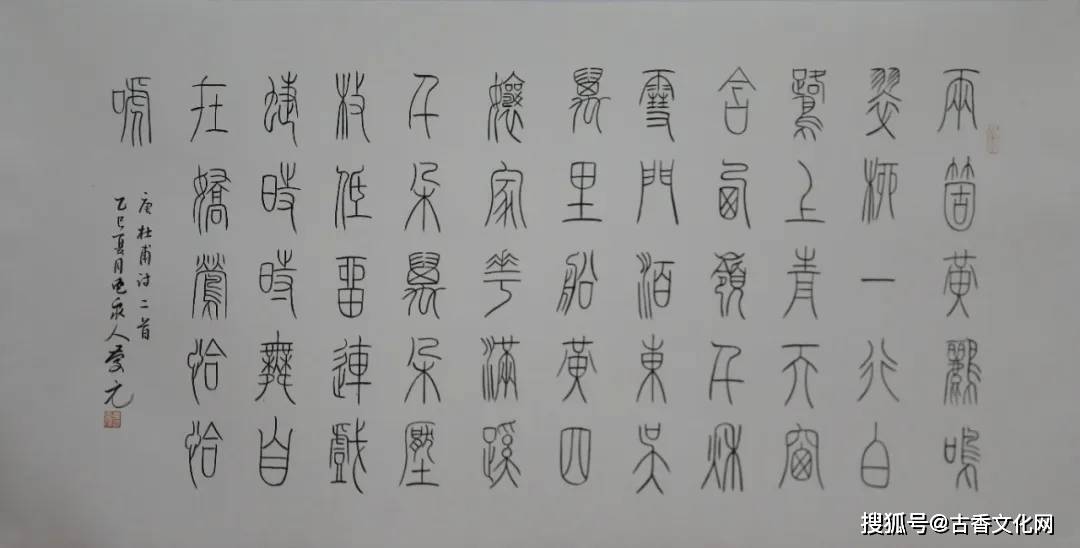 兩箇黃鸝鳴
翠柳一行白
鷺上青天窗
含西嶺千秋
雪門泊東吳
萬里船黃四
孃家華滿蹊
千朵萬朵壓
枝低留連戲
蜨時時舞自
在嬌鶯恰恰
嗁
唐杜甫詩二首
乙巳夏月人元
搜狐号@古香文化网